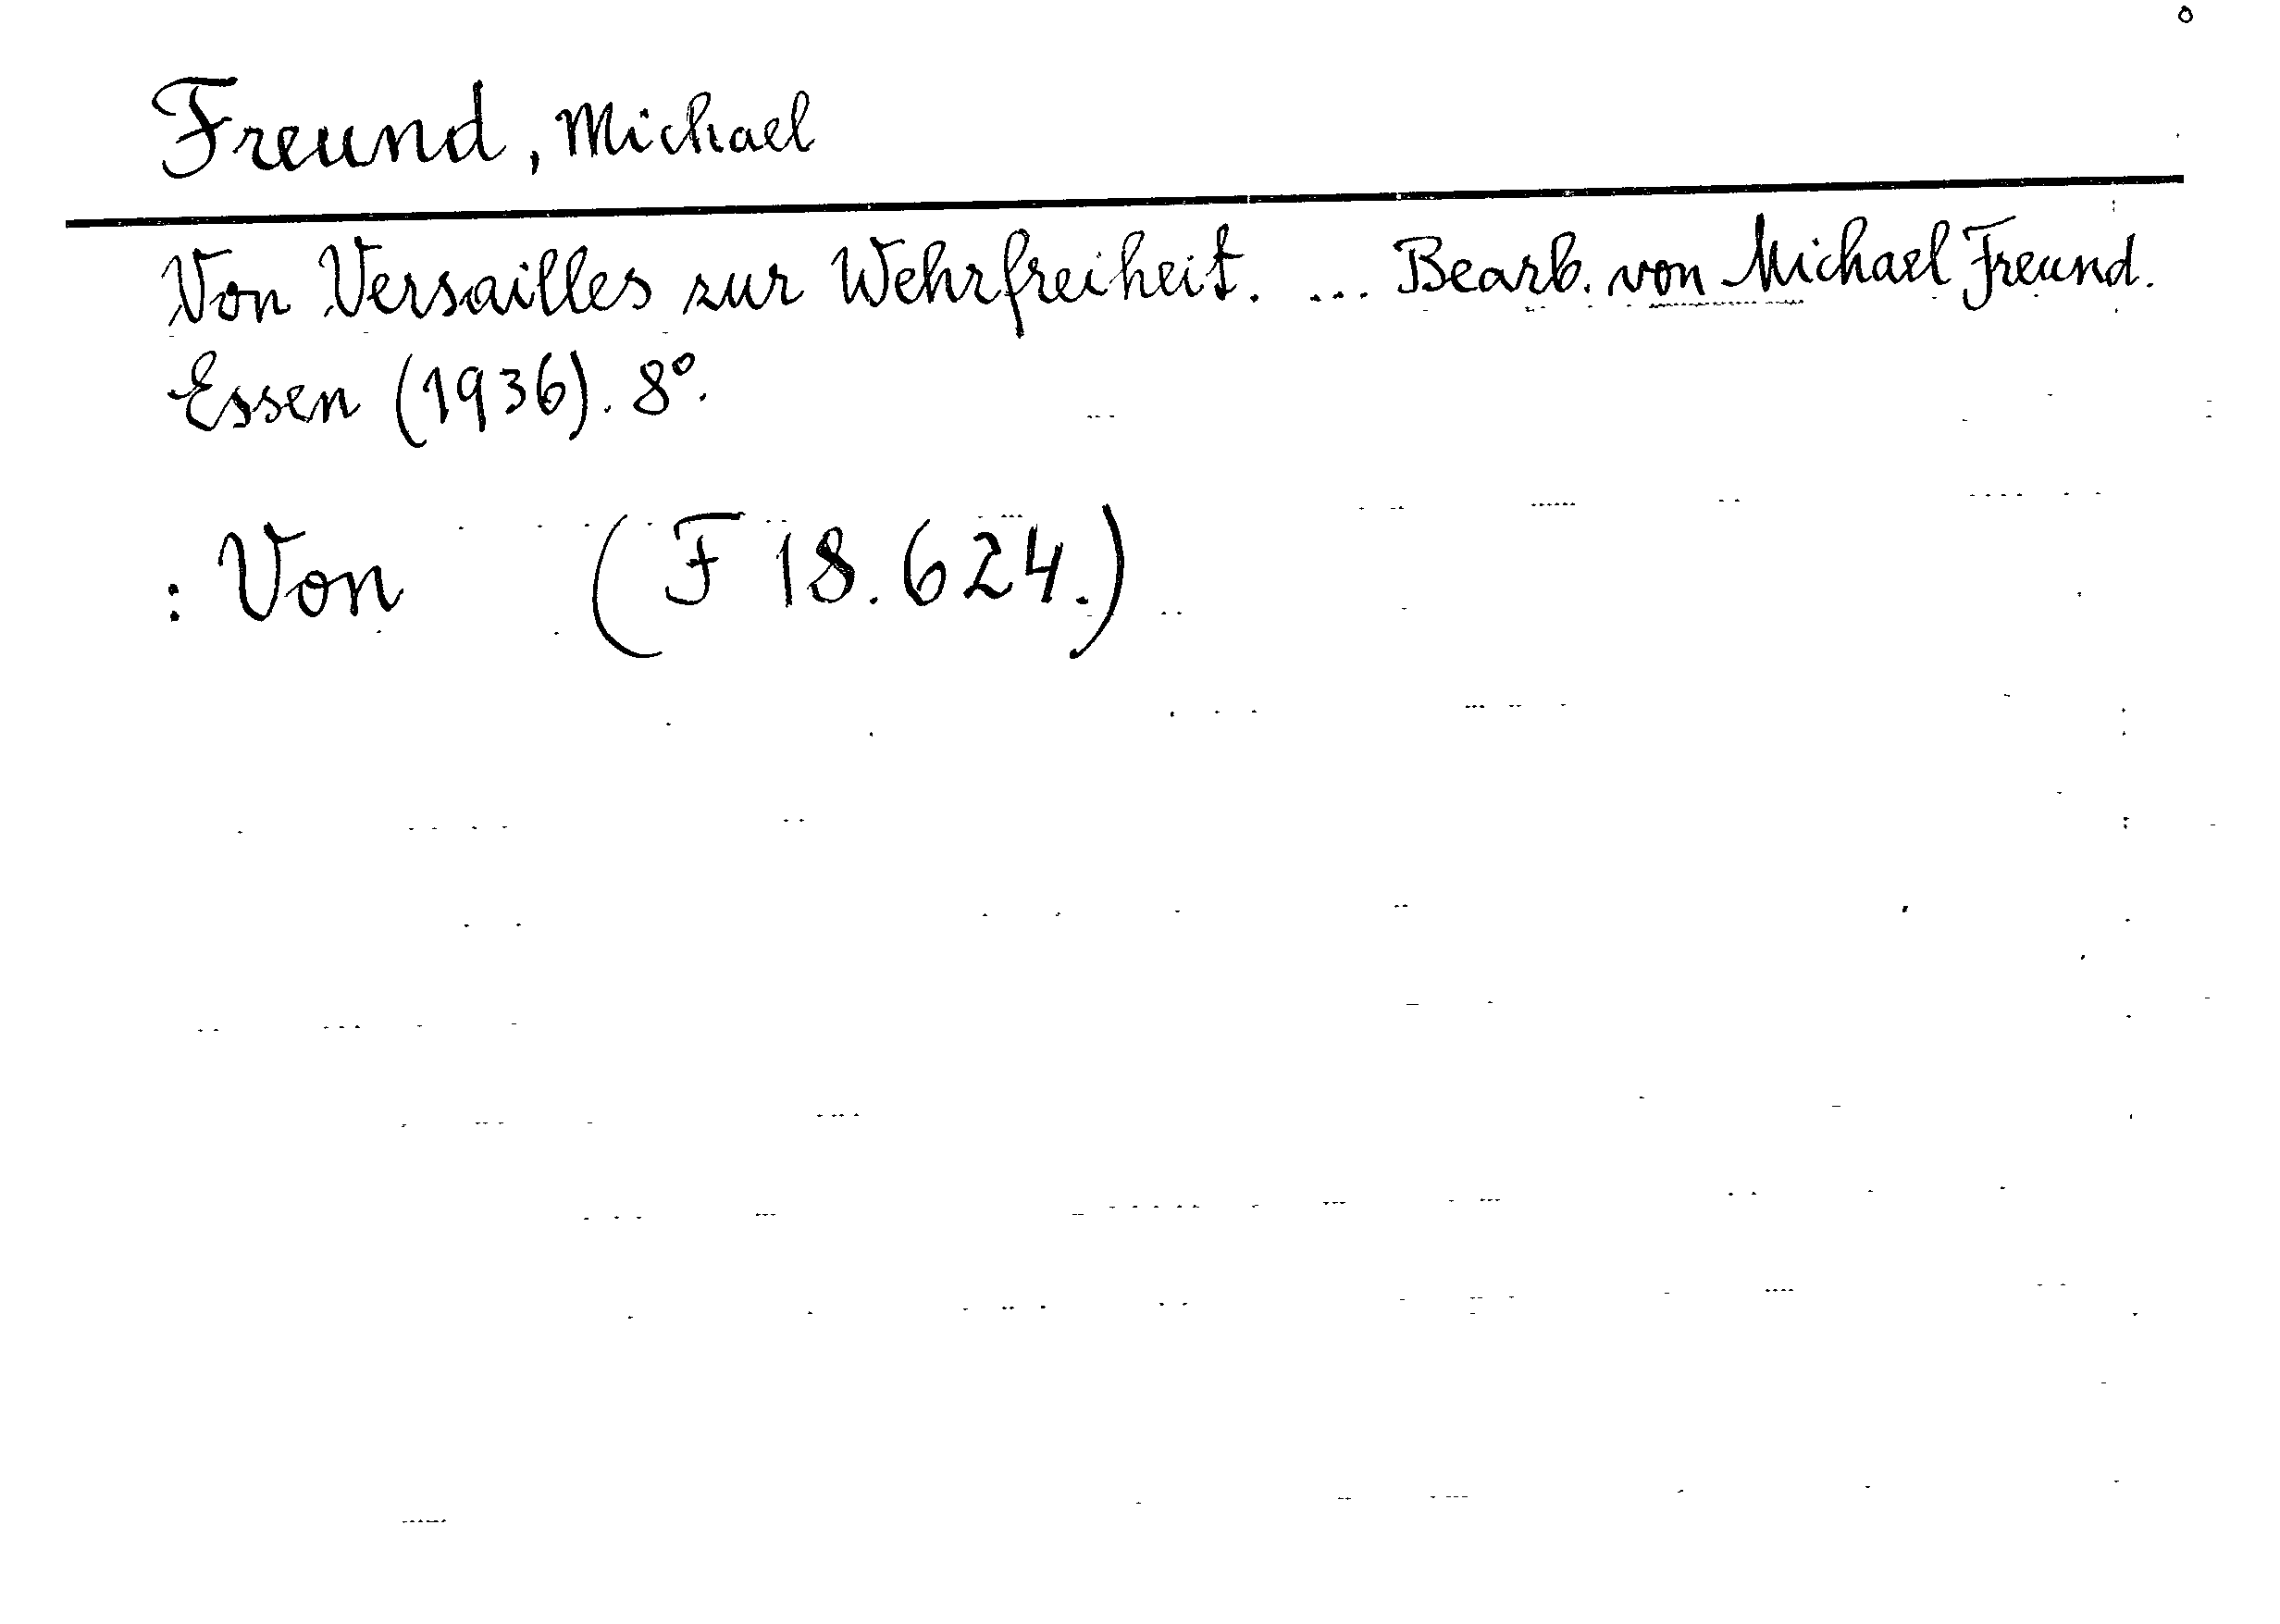 Freund, Michael
Von Versailles zur Wehrfreiheit. ... Bearb. von Michael Freund.
Essen (1936). 8°.
: Von (F 18.624.)